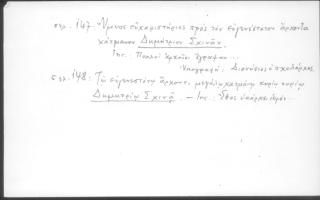 σελ. 147: Ὕμνος εὐχαριστήριος πρὸς τὸν εὐγενέστατον ἄρχοντα
χάτμανον Δημήτριον Σχινᾶν.
Inc. Πολλοὶ
Ὑπογραφή: Διονύσιος ὁ σχολάρχης
σελ. 148: Τῷ εὐγενεστάτῳ ἄρχοντι μεγάλῳ χατμάνῳ κυρίῳ κυρίῳ
Δημητρίῳ Σχινᾷ. — Inc.: Ἔθος